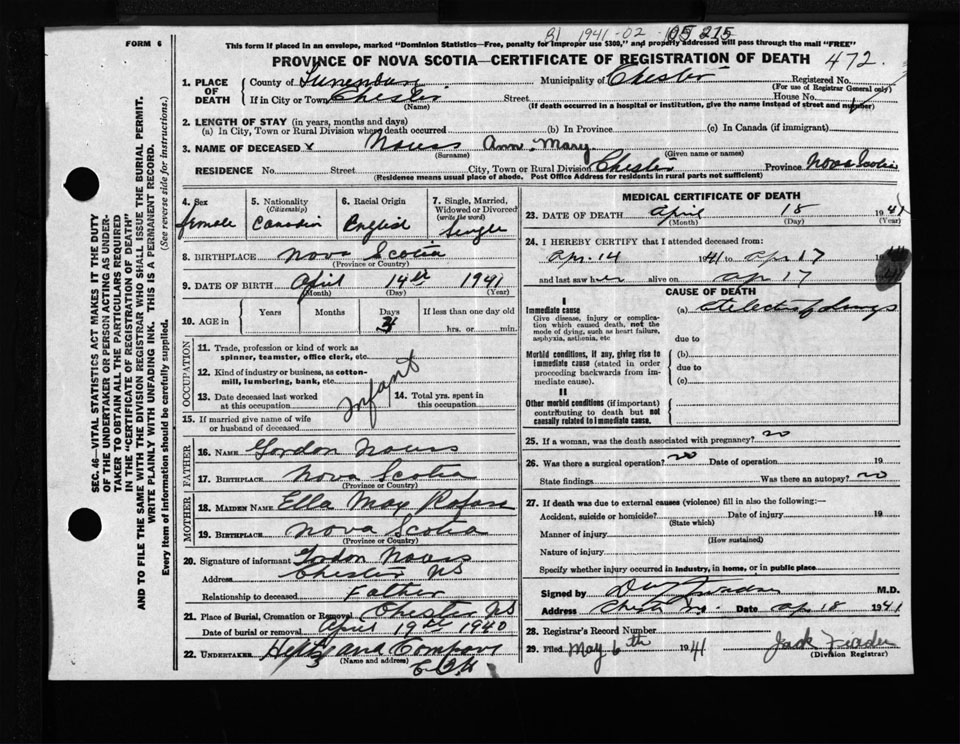 B1 1941-02- 215
FORM 6
This form if placed in an envelope, marked "Dominion Statistics—Free, penalty for improper use $300," and properly addressed will pass through the mail "FREE"
PROVINCE OF NOVA SCOTIA—CERTIFICATE OF REGISTRATION OF DEATH 472.
1. PLACE OF DEATH County of Lunenburg Municipality of Chester Registered No.
(For use of Registrar General only)
If in City or Town Chester Street House No.
(Name) (If death occurred in a hospital or institution, give the name instead of street and number)
2. LENGTH OF STAY (in years, months and days)
(a) In City, Town or Rural Division where death occurred (b) In Province (c) In Canada (if immigrant)
3. NAME OF DECEASED x Nauss Ann Mary
(Surname) (Given name or names)
RESIDENCE No. Street City, Town or Rural Division Chester Province Nova Scotia
(Residence means usual place of abode. Post Office Address for residents in rural parts not sufficient)
4. Sex
female
5. Nationality
(Citizenship)
Canadin
6. Racial Origin
English
7. Single, Married,
Widowed or Divorced
(write the word)
Single
8. BIRTHPLACE Nova Scotia
(Province or Country)
9. DATE OF BIRTH April 14th 1941
(Month) (Day) (Year)
10. AGE in Years Months Days If less than one day old
hrs. or min.
OCCUPATION
11. Trade, profession or kind of work as
spinner, teamster, office clerk, etc.
12. Kind of industry or business, as cotton-
mill, lumbering, bank, etc.
infant
13. Date deceased last worked
at this occupation
14. Total yrs. spent in
this occupation
15. If married give name of wife
or husband of deceased
FATHER
16. NAME Gordon Nauss
17. BIRTHPLACE Nova Scotia
(Province or Country)
MOTHER
18. MAIDEN NAME Ella May
19. BIRTHPLACE Nova Scotia
(Province or Country)
20. Signature of informant Gordon Nauss
Address Chester NS
Relationship to deceased Father
21. Place of Burial, Cremation or Removal Chester NS
Date of burial or removal April 19th 1940
22. UNDERTAKER and Company
(Name and address)
MEDICAL CERTIFICATE OF DEATH
23. DATE OF DEATH April 18 1941
(Month) (Day) (Year)
24. I HEREBY CERTIFY that I attended deceased from:
Apr. 14 1941 to Apr 17
and last saw her alive on Apr 17
CAUSE OF DEATH
I
Immediate cause
Give disease, injury or complica-
tion which caused death, not the
mode of dying, such as heart failure,
asphyxia, asthenia, etc
(a) Atelectasis of lungs
due to
Morbid conditions, if any, giving rise to
immediate cause (stated in order
proceeding backwards from im-
mediate cause).
(b)
due to
(c)
II
Other morbid conditions (if important)
contributing to death but not
causally related to immediate cause.
25. If a woman, was the death associated with pregnancy? no
26. Was there a surgical operation? no Date of operation 19
State findings Was there an autopsy? no
27. If death was due to external causes (violence) fill in also the following:—
Accident, suicide or homicide? Date of injury 19
(State which)
Manner of injury
(How sustained)
Nature of injury
Specify whether injury occurred in industry, in home, or in public place
Signed by M.D.
Address Chester N.S. Date Apr 18 1941
28. Registrar's Record Number
29. Filed May 6th 1941 Jack
(Division Registrar)
SEC. 46—VITAL STATISTICS ACT MAKES IT THE DUTY
OF THE UNDERTAKER OR PERSON ACTING AS UNDER-
TAKER TO OBTAIN ALL THE PARTICULARS REQUIRED
IN THE "CERTIFICATE OF REGISTRATION OF DEATH"
AND TO FILE THE SAME WITH THE DIVISION REGISTRAR WHO SHALL ISSUE THE BURIAL PERMIT.
WRITE PLAINLY WITH UNFADING INK. THIS IS A PERMANENT RECORD.
Every item of information should be carefully supplied. (See reverse side for instructions.)